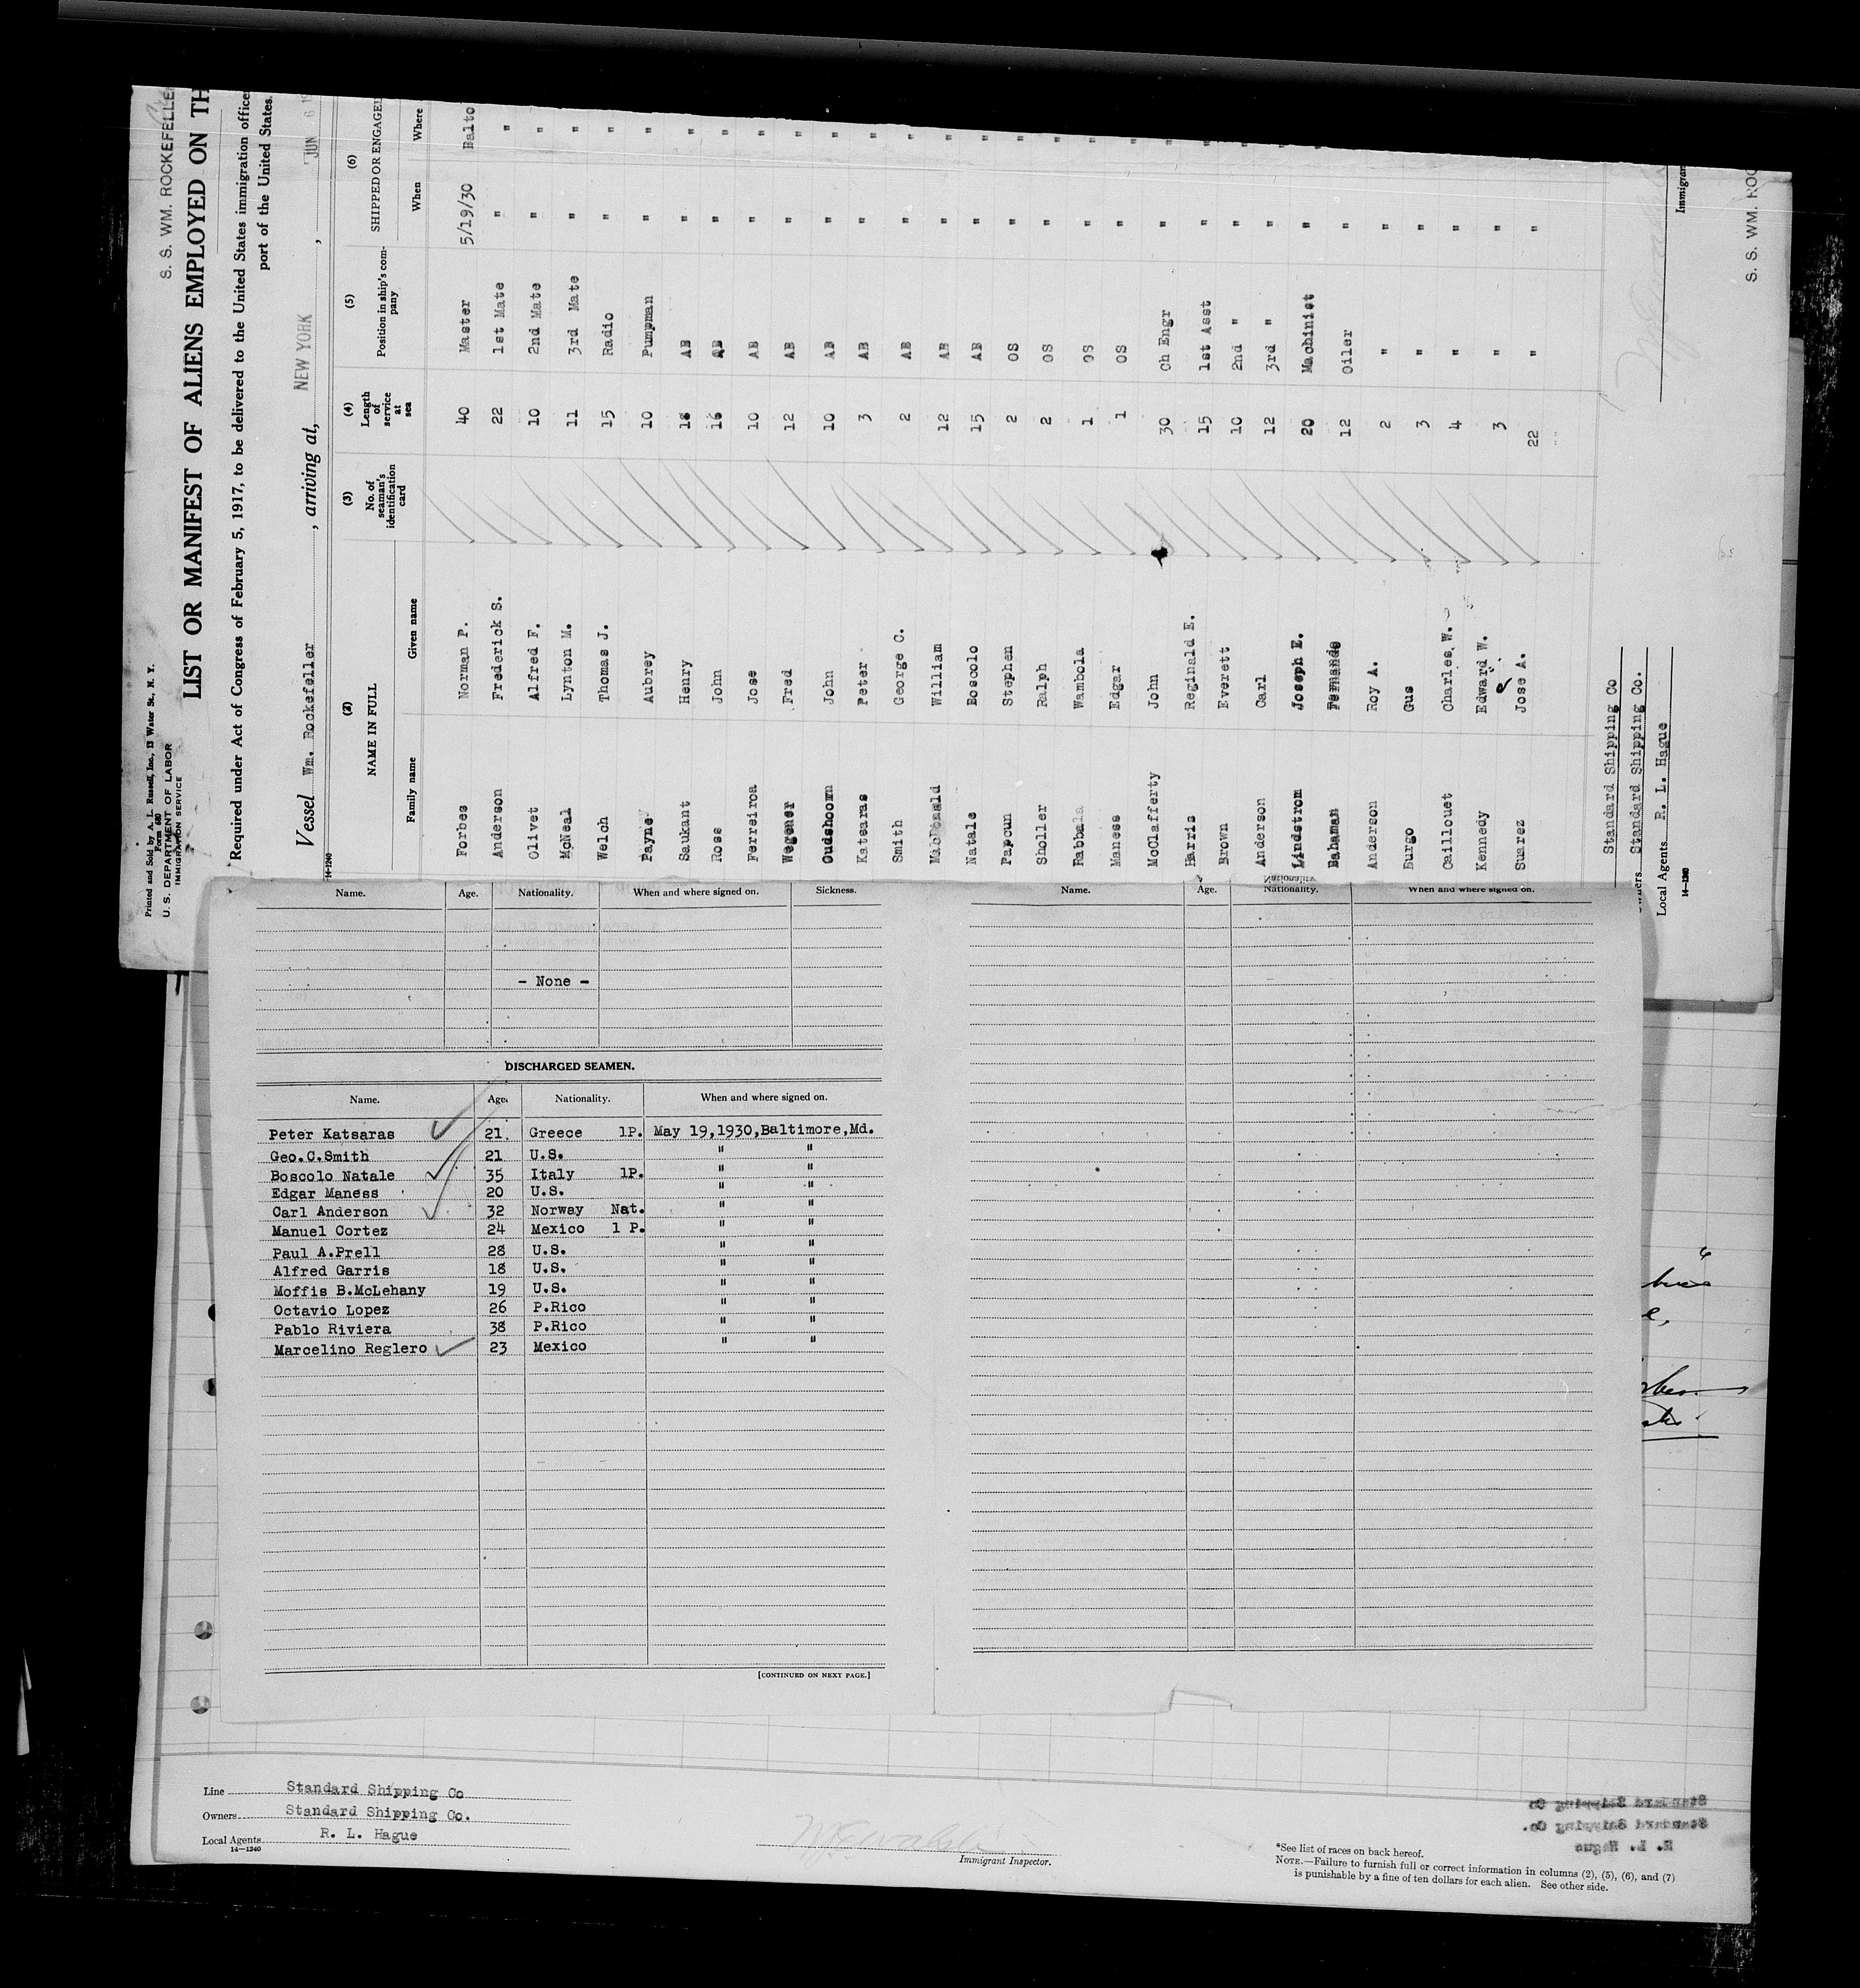 Printed and Sold by A. L. Russell, Inc., 13 Water St., N. Y.
Form 680
U. S. DEPARTMENT OF LABOR
IMMIGRATION SERVICE
S. S. WM. ROCKEFELLER
LIST OR MANIFEST OF ALIENS EMPLOYED ON TH
Required under Act of Congress of February 5, 1917, to be delivered to the United States immigration officer
port of the United States.
Vessel Wm. Rockefeller, arriving at, NEW YORK, JUN 6 19
14-1240
(2) (3) (4) (5) (6)
NAME IN FULL No. of seaman's identification card Length of service at sea Position in ship's company SHIPPED OR ENGAGED
Family name Given name When Where
Forbes Norman P. 40 Master 5/19/30 Balto
Anderson Frederick S. 22 1st Mate " "
Olivet Alfred F. 10 2nd Mate " "
McNeal Lynton M. 11 3rd Mate " "
Welch Thomas J. 15 Radio " "
Payne Aubrey 10 Pumpman " "
Saukant Henry 18 AB " "
Ross John 16 AB " "
Ferreiroa Jose 10 AB " "
Wegener Fred 12 AB " "
Oudshoorn John 10 AB " "
Katsaras Peter 3 AB " "
Smith George C. 2 AB " "
MacDonald William 12 AB " "
Natale Boscolo 15 AB " "
Papcun Stephen 2 OS " "
Sholler Ralph 2 OS " "
Rabbala Wambola 1 OS " "
Maness Edgar 1 OS " "
McClafferty John 30 Ch Engr " "
Harris Reginald E. 15 1st Asst " "
Brown Everett 10 2nd " " "
Anderson Carl 12 3rd " " "
Lindstrom Joseph E. 20 Machinist " "
Bahaman Fernando 12 Oiler "
Anderson Roy A. 2 " "
Burgo Gus 3 " "
Caillouet Charles W. 4 " "
Kennedy Edward W. 3 " "
Suarez Jose A. 22 " "
Standard Shipping Co
Owners Standard Shipping Co.
Local Agents R. L. Hague
14-1240
Immigran
S. S. WM. ROC
Name. Age. Nationality. When and where signed on. Sickness.
- None -
DISCHARGED SEAMEN.
Name. Age. Nationality. When and where signed on.
Peter Katsaras 21. Greece 1P. May 19,1930,Baltimore,Md.
Geo.C.Smith 21 U.S. " "
Boscolo Natale 35 Italy 1P. " "
Edgar Maness 20 U.S. " "
Carl Anderson 32 Norway Nat. " "
Manuel Cortez 24 Mexico 1 P. " "
Paul A.Prell 28 U.S. " "
Alfred Garris 18 U.S. " "
Moffis B.McLehany 19 U.S. " "
Octavio Lopez 26 P.Rico " "
Pablo Riviera 38 P.Rico " "
Marcelino Reglero 23 Mexico " "
[CONTINUED ON NEXT PAGE.]
Name. Age. Nationality. When and where signed on.
Line Standard Shipping Co
Owners Standard Shipping Co.
Local Agents R. L. Hague
14-1240
Immigrant Inspector.
*See list of races on back hereof.
NOTE.—Failure to furnish full or correct information in columns (2), (5), (6), and (7)
is punishable by a fine of ten dollars for each alien. See other side.
Standard Shipping Co
Standard Shipping Co.
R. L. Hague